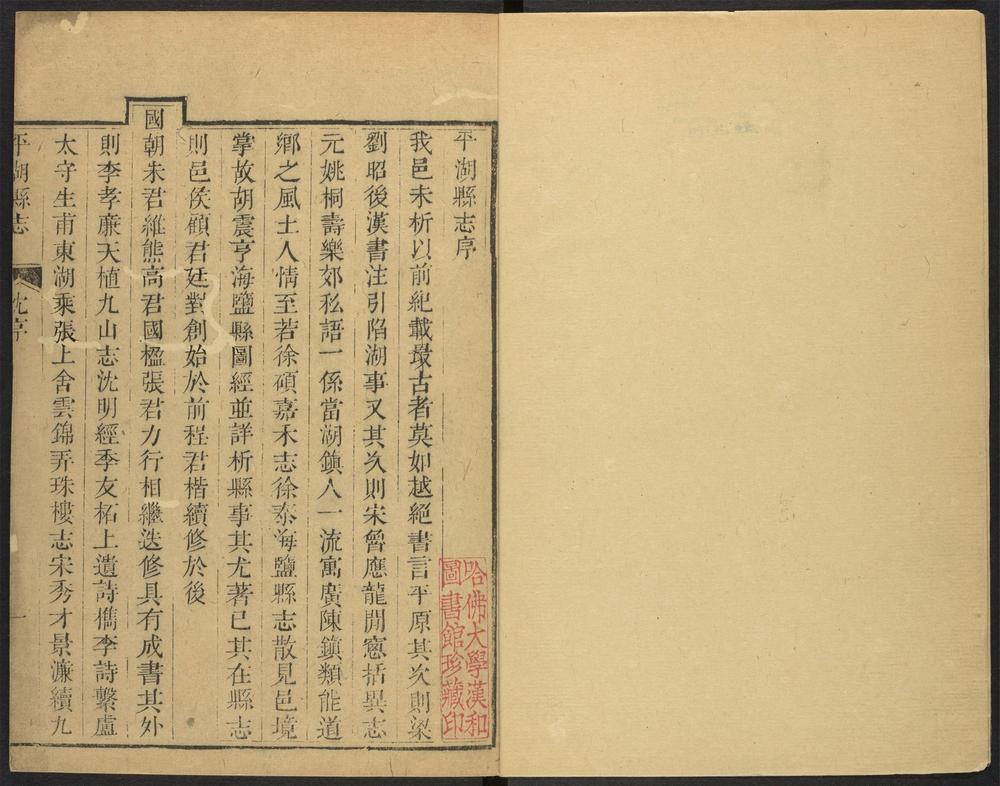 平湖縣志序
我邑未析以前紀載最古者莫如越絕書言平原其次則梁
劉昭後漢書注引陷湖事又其次則宋魯應龍閒窻括異志
元姚桐壽樂郊私語一係當湖鎮人一流寓廣陳鎮類能道
鄉之風土人情至若徐碩嘉禾志徐泰海鹽縣志散見邑境
掌故胡震亨海鹽縣圖經並詳析縣事其尤著已其在縣志
則邑侯顧君廷對創始於前程君楷續修於後
國朝朱君維熊高君國楹張君力行相繼迭修具有成書其外
則李孝廉天植九山志沈明經季友柘上遺詩檇李詩繫盧
太守生甫東湖乘張上舍雲錦弄珠樓志宋秀才景濂續九
平湖縣志 沈序 一
哈佛大學漢和
圖書館珍藏印